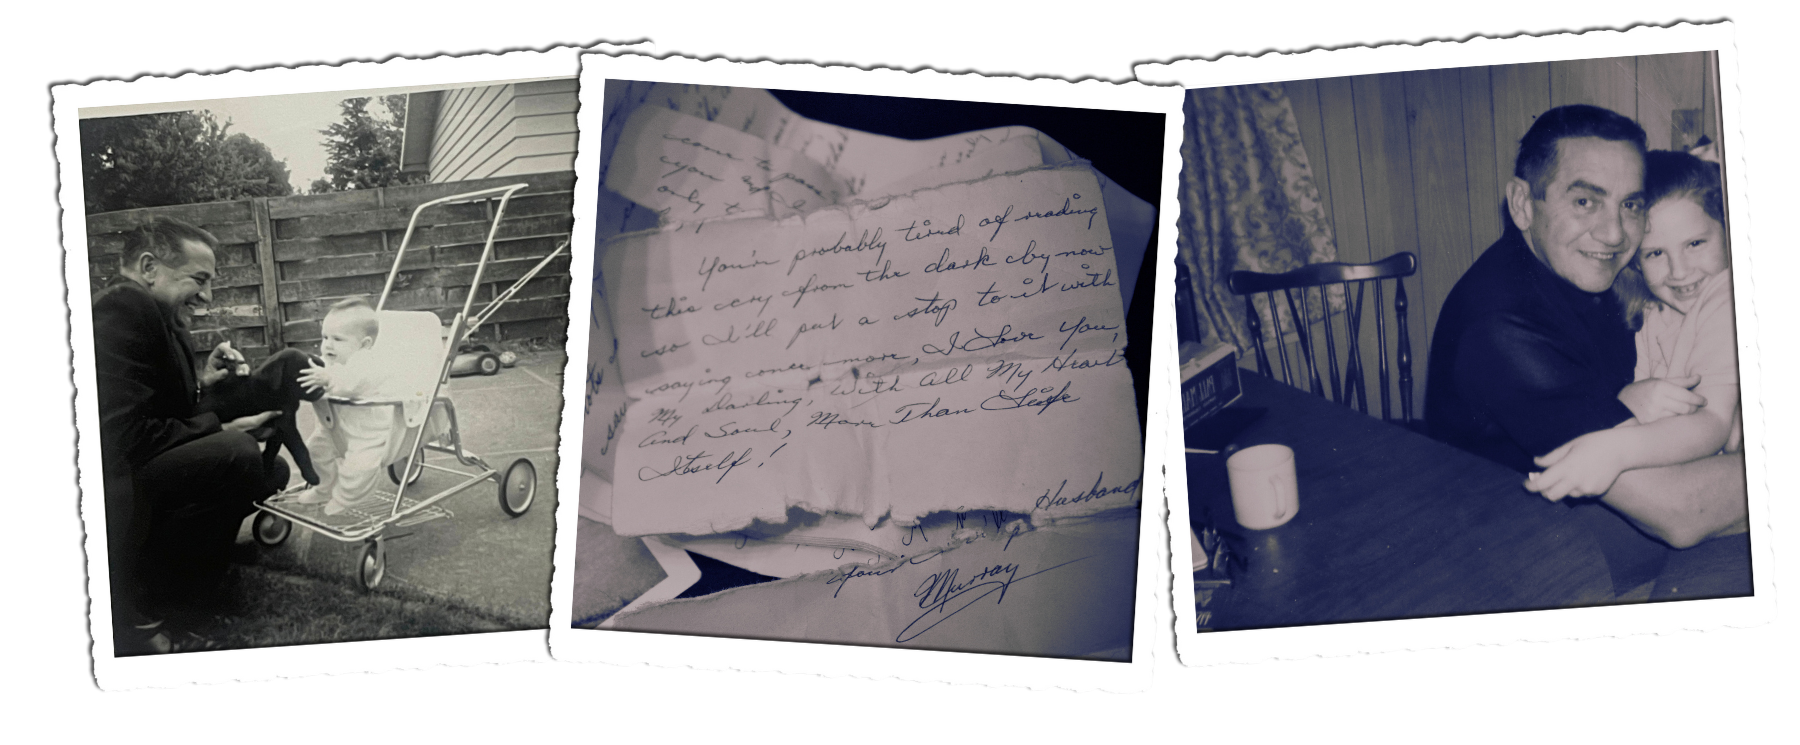 come to
you
only t
You're probably tired of reading
this cry from the dark by now
so I'll put a stop to it with
saying once more, I Love You,
My Darling, With All My Heart
And Soul, More Than Life
Itself!
Husband
Murray